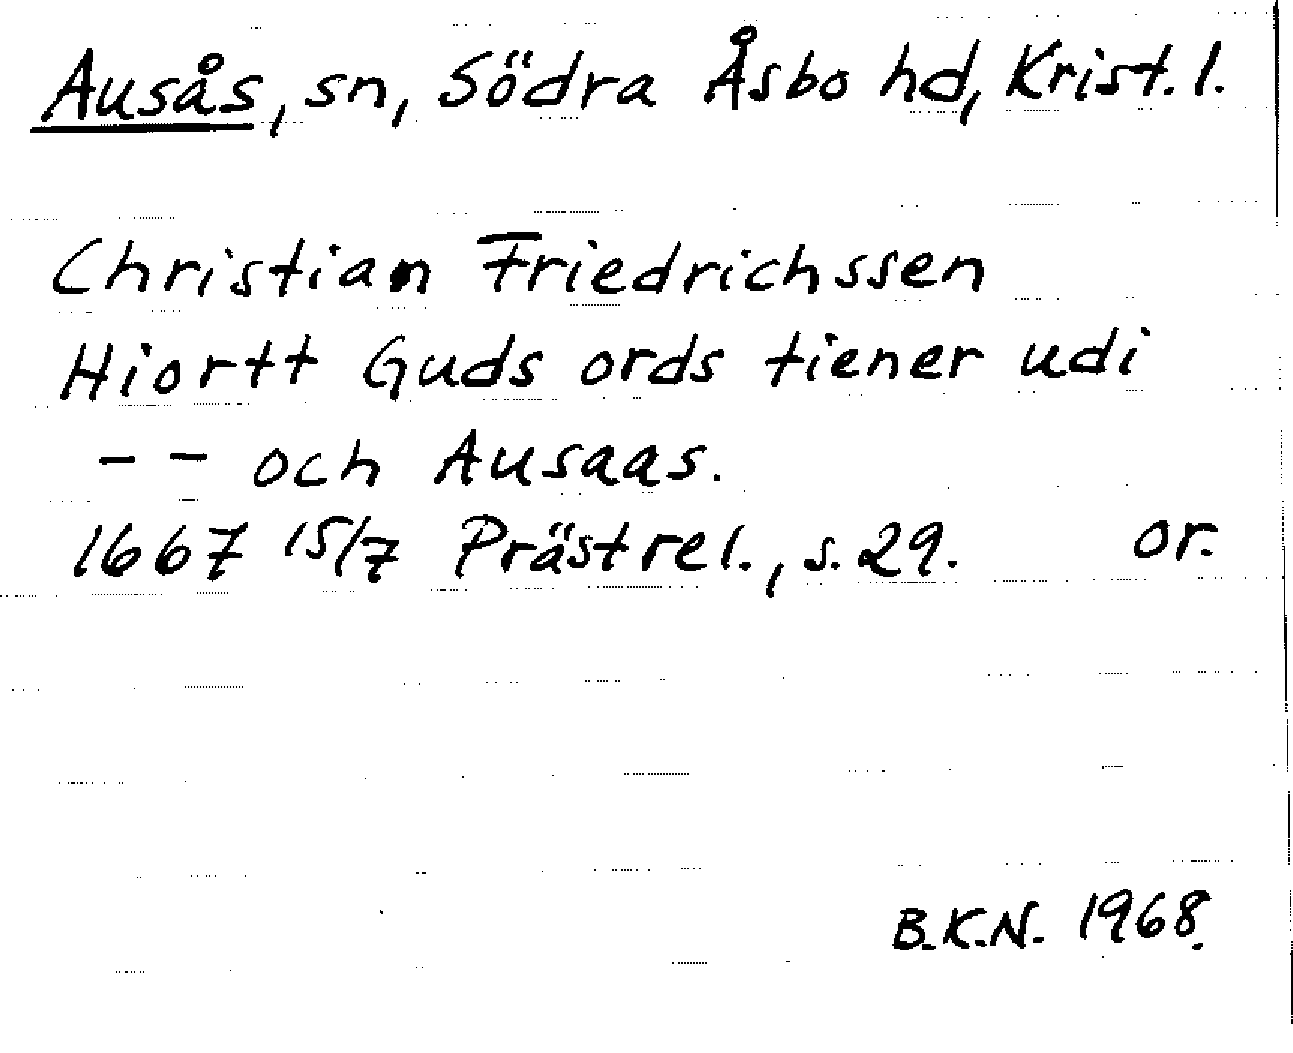 Ausås, sn, Södra Åsbo hd, Krist. l.
Christian Friedrichssen
Hiortt Guds ords tiener udi
- - och Ausaas.
1667 15/7 Prästrel., s. 29. or.
B.K.N. 1968.